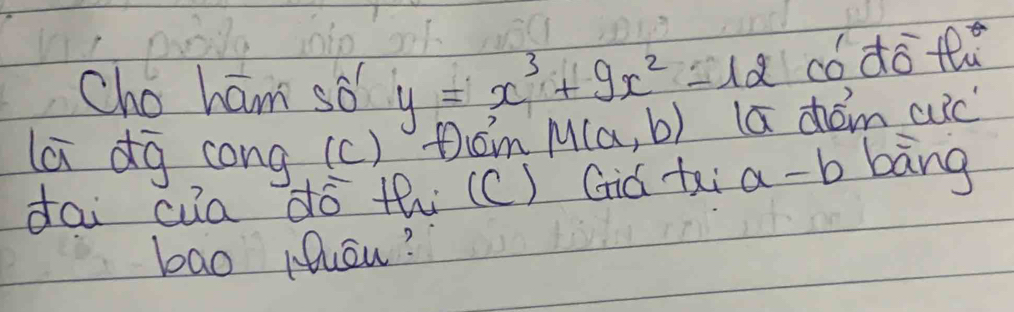 Cho hàm số y = x³ + 9x² - 12 có đồ thị
là đg cong (C) Điểm M(a,b) là điểm cực
đại của đồ thị (C) Giá trị a - b bằng
bao nhiêu?